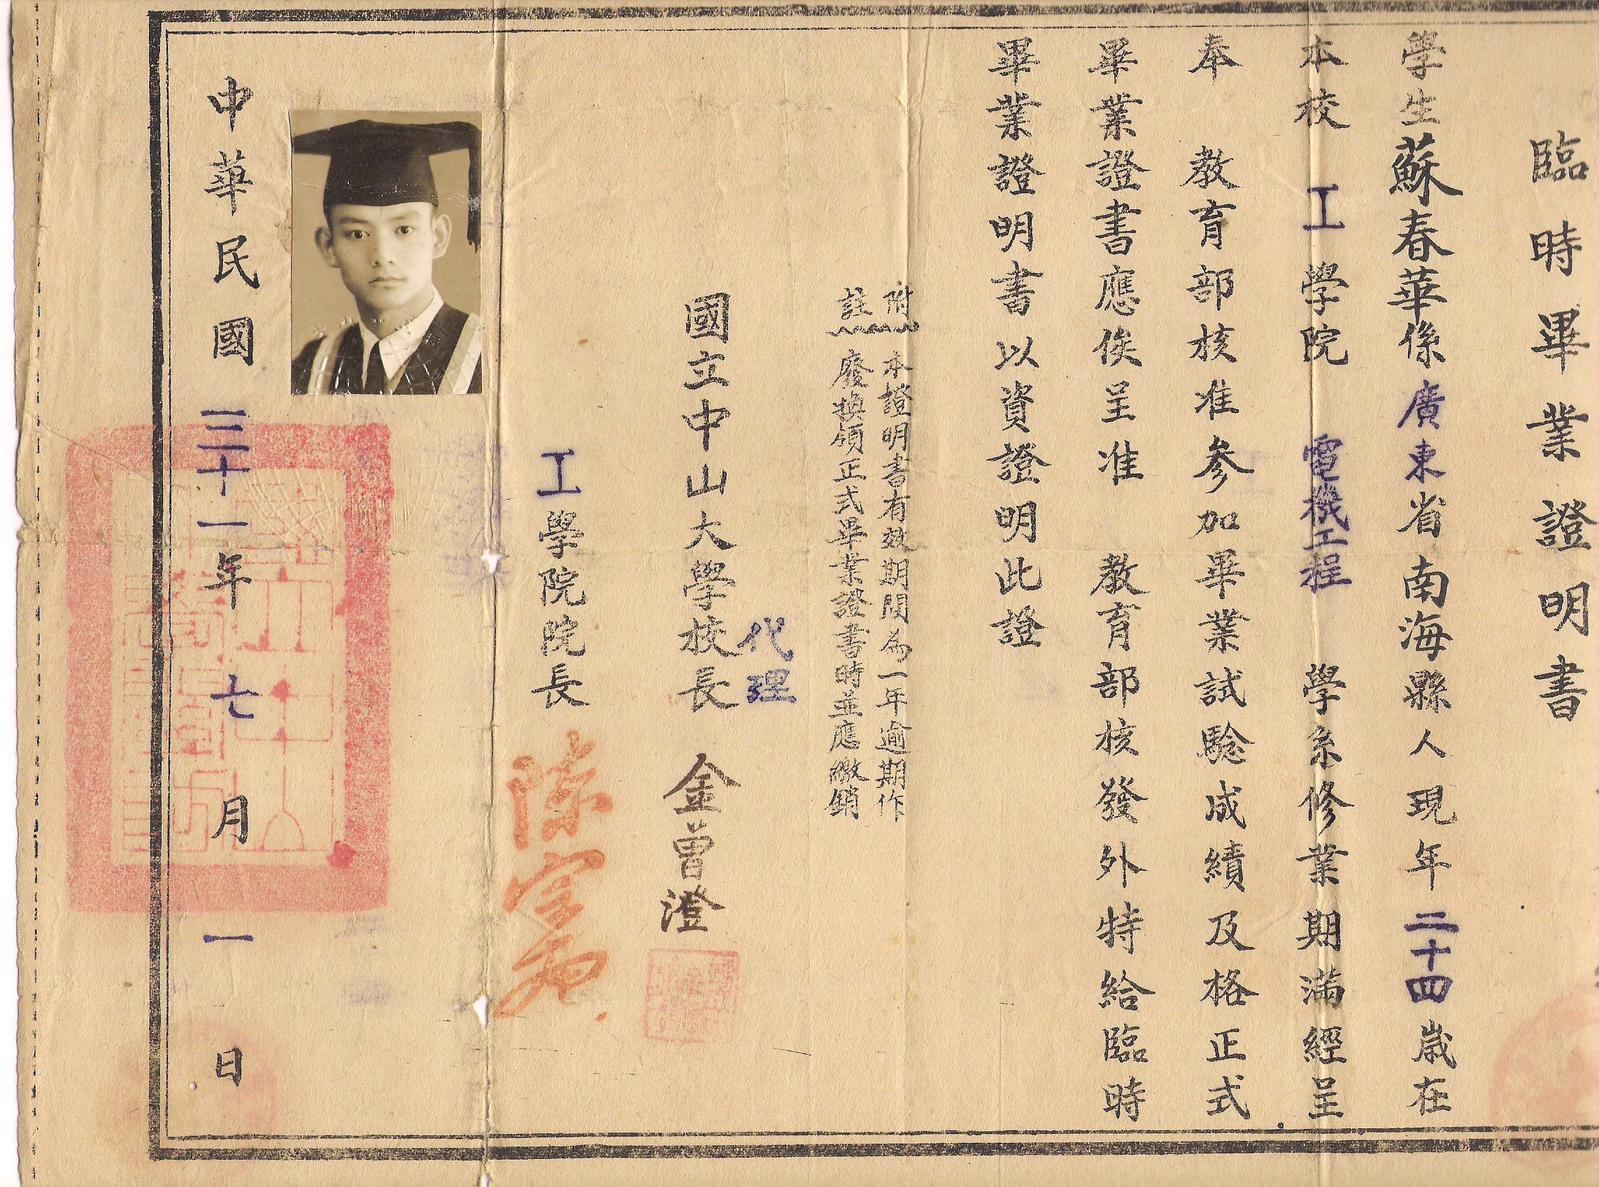 臨時畢業證明書
學生蘇春華係廣東省南海縣人現年二十四歲在
本校工學院電機工程學系修業期滿經呈
奉教育部核准參加畢業試驗成績及格正式
畢業證書應俟呈准教育部核發外特給臨時
畢業證明書以資證明此證
附註
本證明書有效期間為一年逾期作
廢換領正式畢業證書時並應繳銷
代理
國立中山大學校長金曾澄
工學院院長陳宗南
中華民國三十一年七月一日